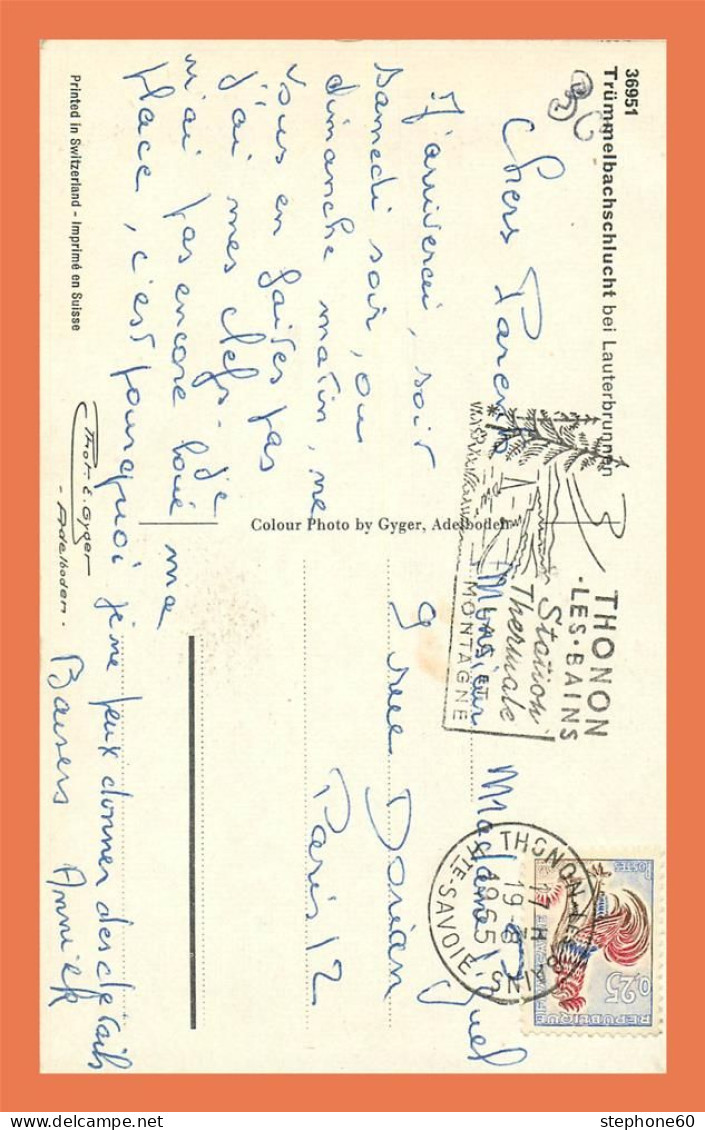 36951
Trümmelbachschlucht bei Lauterbrunnen
Chers Parents
J'arriverai, soit
samedi soir, ou
dimanche matin, ne
vous en faites pas
j'ai mes clefs. Je
n'ai pas encore loué ma
place, c'est pourquoi je ne peux donner des détails
Baisers Annick
Printed in Switzerland - Imprimé en Suisse
Phot. E. Gyger
- Adelboden -
Colour Photo by Gyger, Adelboden
THONON
-LES-BAINS
Station
Thermale
LAC ET
MONTAGNE
THONON-LES-BAINS
17 H
19-8
1965
HTE-SAVOIE
POSTES
0,25
REPUBLIQUE FRANÇAISE
Monsieur Madame
9 rue Dorian
Paris 12
stephone60